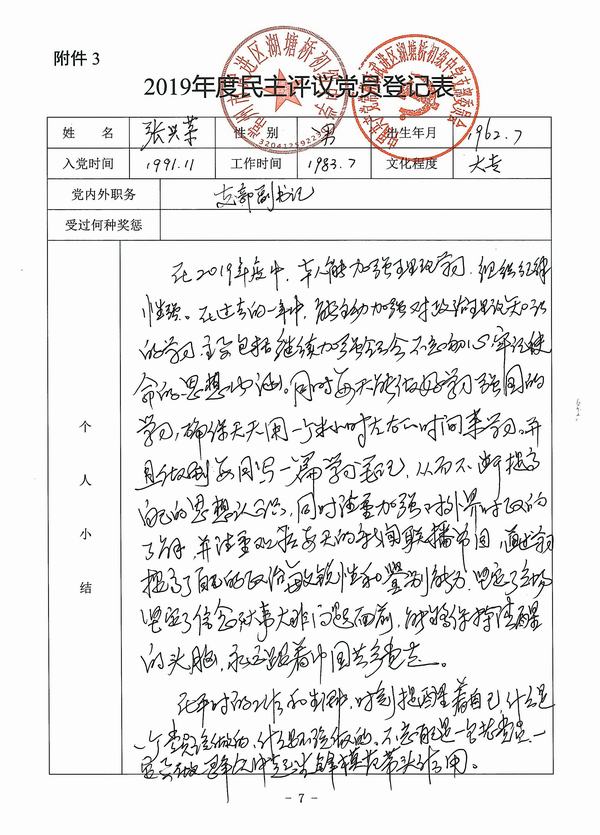 附件 3
2019年度民主评议党员登记表
姓 名 张兴荣 性 别 男 出生年月 1962.7
入党时间 1991.11 工作时间 1983.7 文化程度 大专
党内外职务 支部副书记
受过何种奖惩
个人小结
在2019年度中,本人能加强理论学习,组织纪律
性强。在过去的一年中,能主动加强对政治理论知识
的学习,主要包括继续加强学习不忘初心牢记使
命的思想内涵。同时每天能做好学习强国的
学习,确保天天用一个半小时左右的时间来学习。并
且做到每月写一篇学习笔记,从而不断提高
自己的思想认识,同时注重加强对外界时政的
了解,并注重观看每天的新闻联播节目,通过学习
提高了自己的政治敏锐性和鉴别能力,坚定了立场
坚定了信念对事大非问题面前,能够保持清醒
的头脑,永远跟着中国共产党走。
在平时的工作和生活中,时刻提醒着自己,什么是
一个党员该做的,什么是不该做的,不忘自己是一名共产党员,一
定要在群众中起先锋模范带头作用。
- 7 -